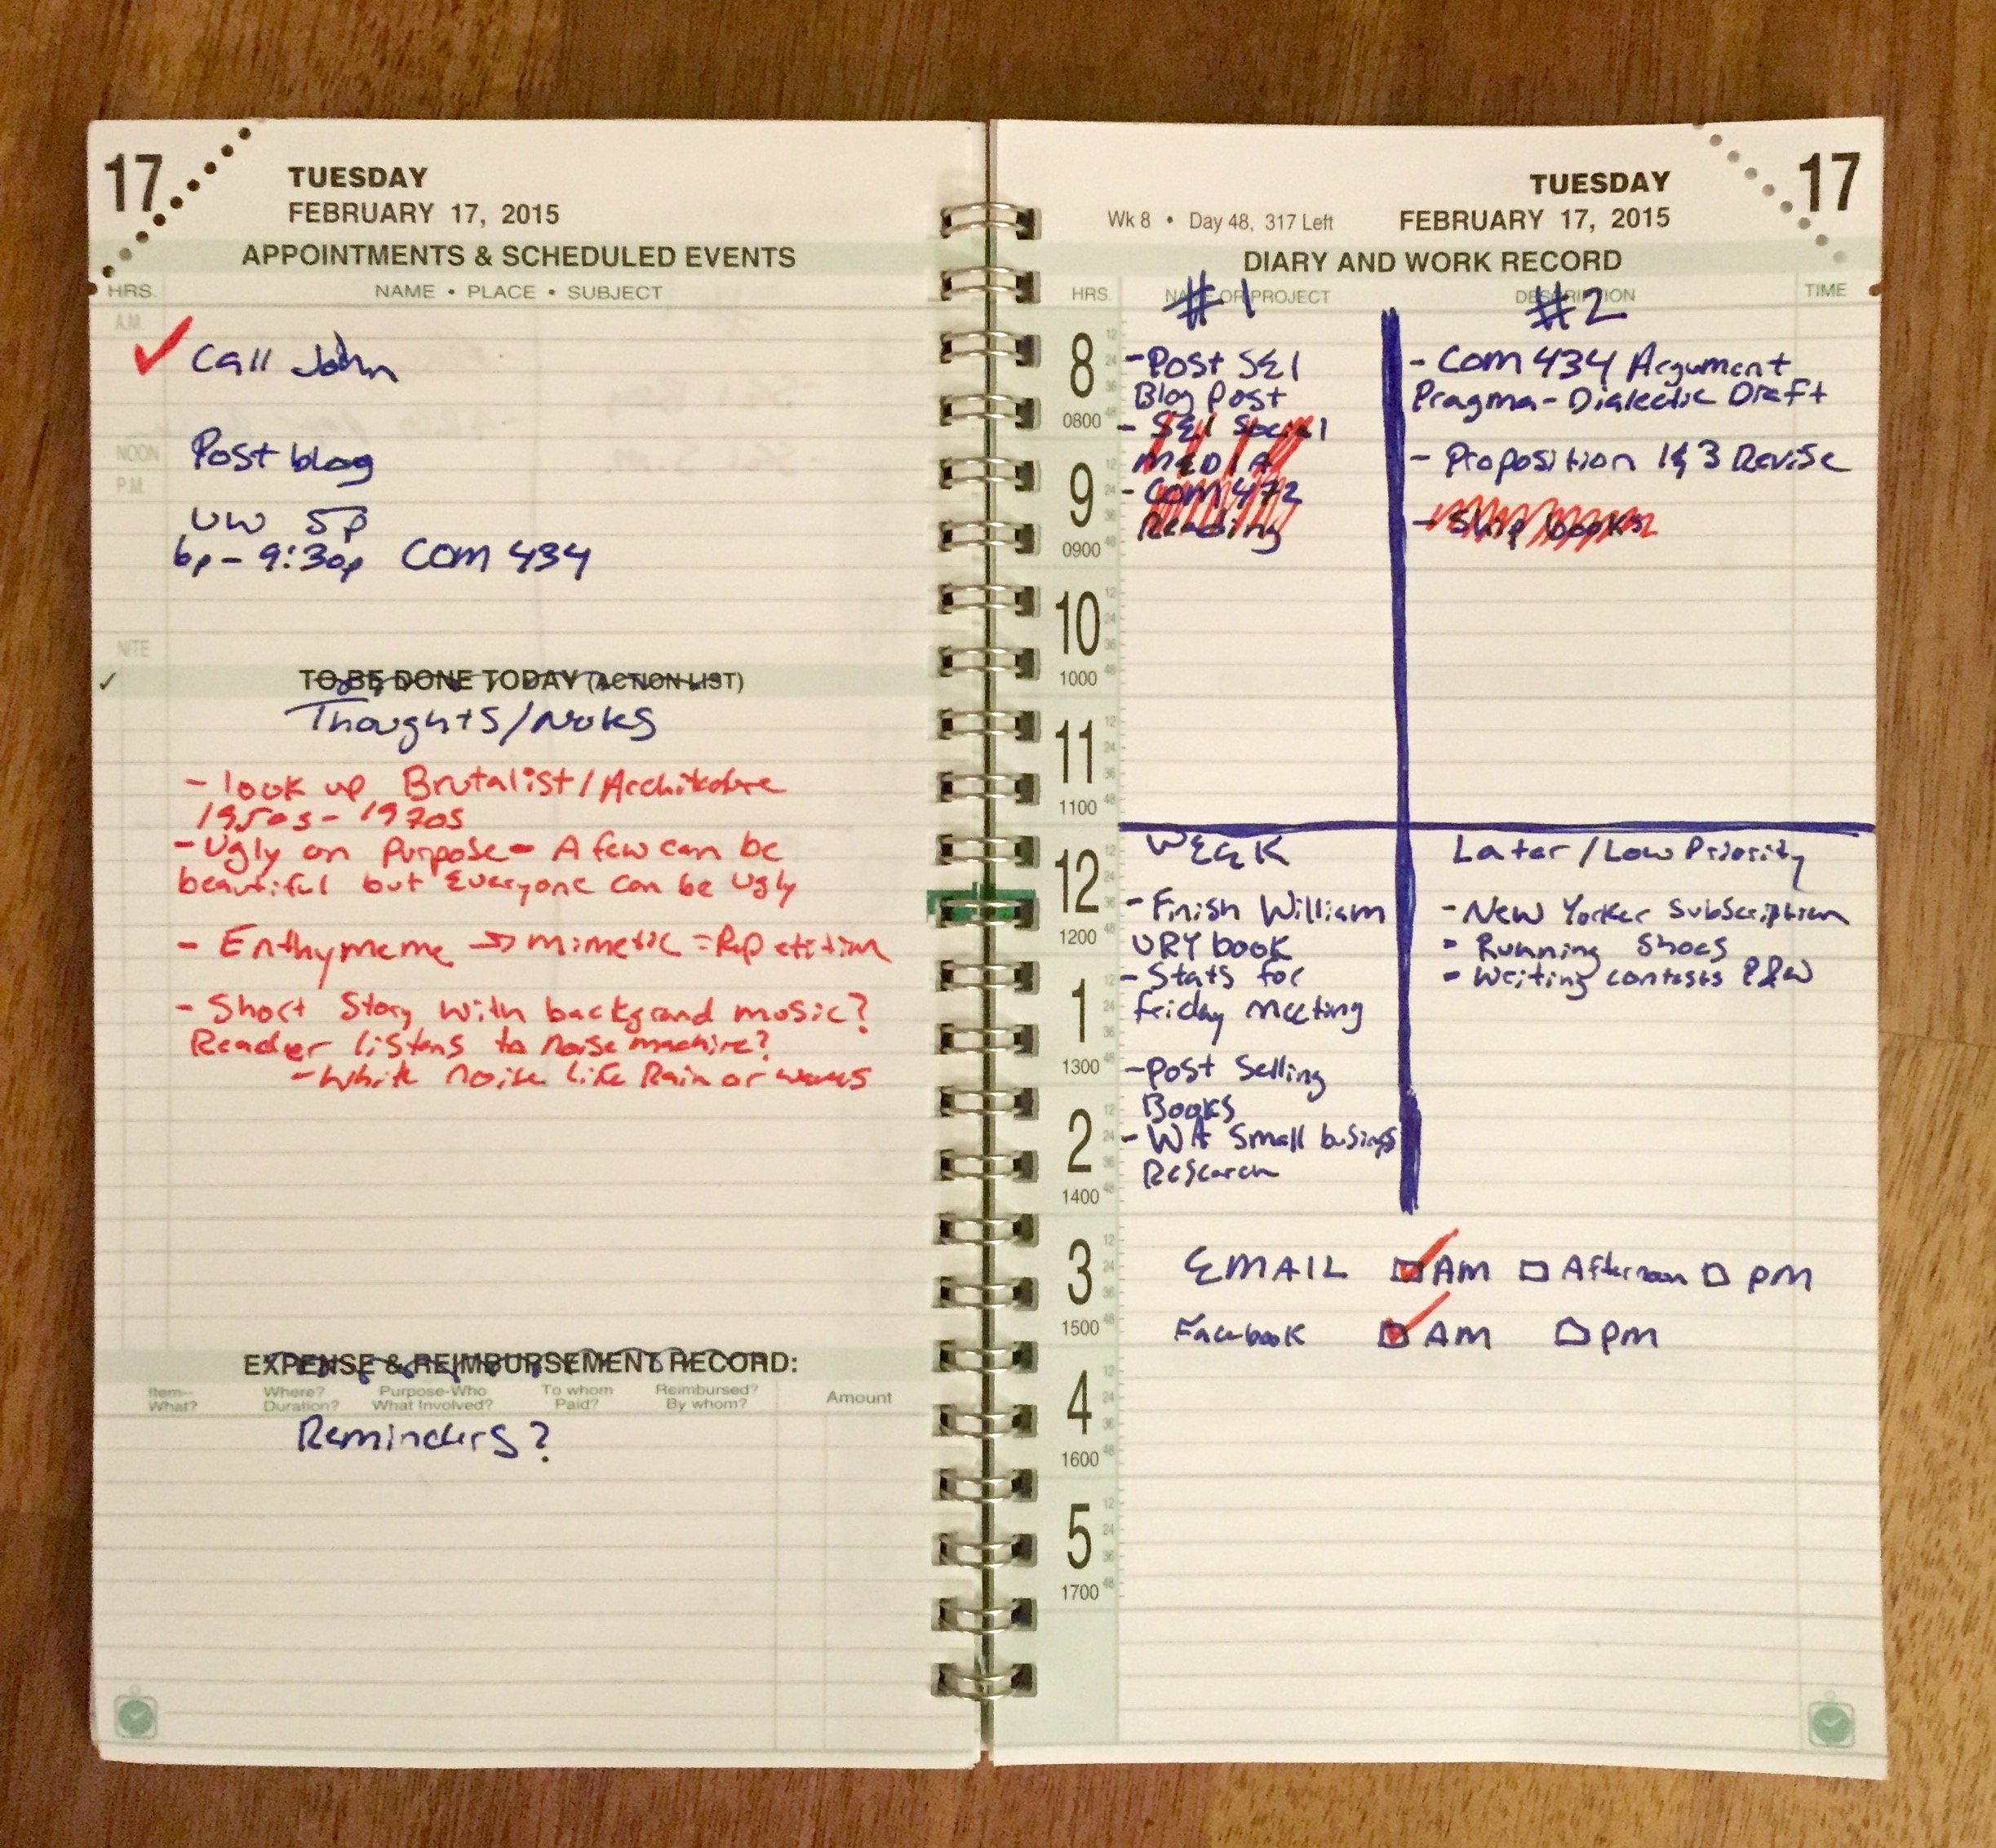 17
TUESDAY
FEBRUARY 17, 2015
APPOINTMENTS & SCHEDULED EVENTS
HRS. NAME • PLACE • SUBJECT
A.M.
✓ Call John
NOON
Post blog
P.M.
UW 5p
6p - 9:30p Com 434
NITE
✓ TO BE DONE TODAY (ACTION LIST)
Thoughts/Notes
- look up Brutalist/Architecture
1950s - 1970s
- Ugly on Purpose - A few can be
beautiful but Everyone can be Ugly
- Enthymeme → mimetic = Repetition
- Short Story with background music?
Reader listens to noise machine?
- White noise like Rain or waves
EXPENSE & REIMBURSEMENT RECORD:
Item-- Where? Purpose-Who To whom Reimbursed? Amount
What? Duration? What Involved? Paid? By whom?
Reminders?
TUESDAY 17
Wk 8 • Day 48, 317 Left FEBRUARY 17, 2015
DIARY AND WORK RECORD
HRS. NAME OR PROJECT DESCRIPTION TIME
#1
- Post SEI
Blog Post
- SEI Social
MEDIA
- Com 472
Reading
#2
- Com 434 Argument
Pragma-Dialectic Draft
- Proposition 1&3 Revise
- Ship books
WEEK
- Finish William
URY book
- Stats for
Friday Meeting
- Post Selling
Books
- WA Small business
Research
Later/Low Priority
- New Yorker Subscription
- Running Shoes
- Writing contests P&W
EMAIL AM Afternoon PM
Facebook AM PM
8
0800
9
0900
10
1000
11
1100
12
1200
1
1300
2
1400
3
1500
4
1600
5
1700